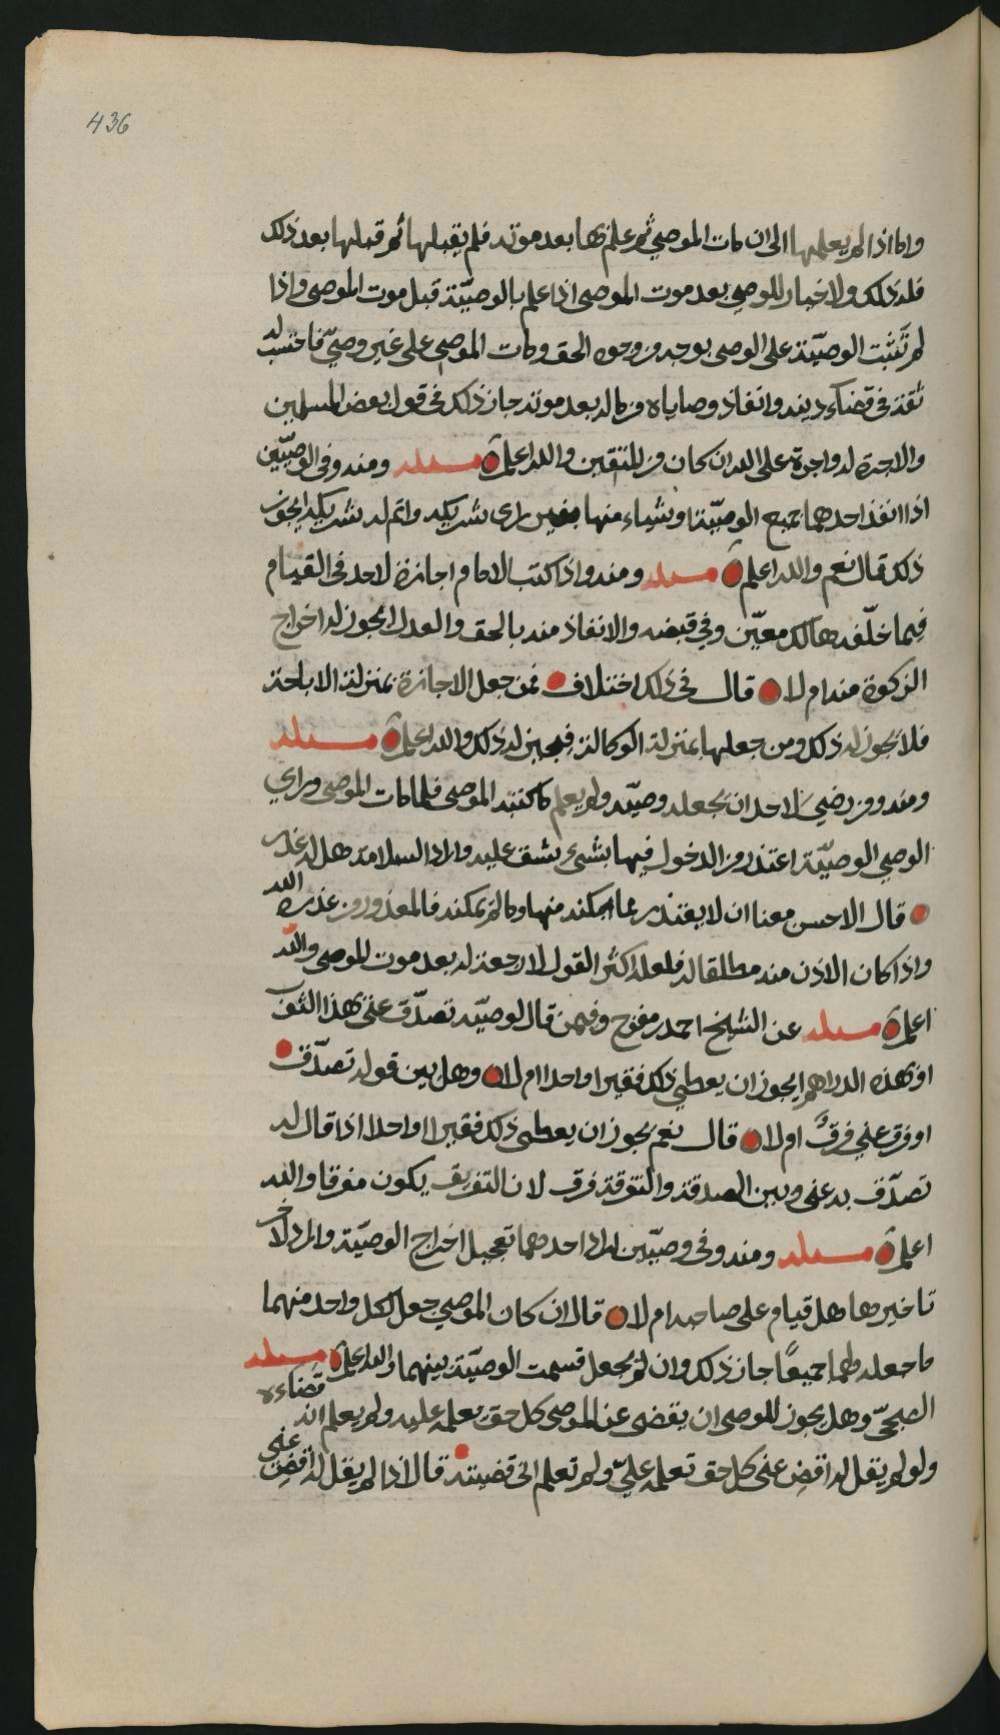 436
واما اذا لم يعلمها الى ان مات الموصي ثم علم بها بعد موته فلم يقبلها ثم قبلها بعد ذلك
فله ذلك ولا خيار للوصي بعد موت الموصى اذا علم بالوصيّة قبل موت الموصى واذا
لم تثبت الوصيّة على الوصى بوجه من وجوه الحق ومات الموصى على غير وصىّ فاحتسب له
ثقة في قضاء دينه وانفاذ وصاياه من ماله بعد موته جاز ذلك في قول بعض المسلمين
والاجرة له واجرة على الله ان كان من المتقين والله اعلم مسئله ومنه وفى الوصيّين
اذا انفذ احدهما جميع الوصيّة او شيئاء منها بغير راى شريكه واتم له شريكه ايجوز
ذلك قال نعم والله اعلم مسئله ومنه واذا كتب الامام اجازة لاحد فى القيام
فيما خلّفه هالك معيّن وفي قبضه والانفاذ منه بالحق والعدل ايجوز له اخراج
الزكوة منه ام لا قال في ذلك اختلاف فمن جعل الاجازة بمنزلة الاباحة
فلا يجوز له ذلك ومن جعلها بمنزلة الوكالة فيجيز له ذلك والله اعلم مسئله
ومنه ومن رضي لاحد ان يجعله وصيّه ولم يعلم ما كتبه الموصى فلما مات الموصى وراي
الوصي الوصيّة اعتذر من الدخول فيها بشىء يشق عليه واراد السلامة هل له عذر
قال الاحسن معنا ان لا يعتذر عما امكنه منها وما لم يمكنه فالمعذور من عذره الله
واذا كان الاذن منه مطلقا له فلعل اكثر القول لا رجعة له بعد موت الموصى والله
اعلم مسئله عن الشيخ احمد بن مفرح وفيمن قال لوصيّه تصدّق عنى بهذا الثوب
او بهذه الدراهم ايجوز ان يعطي ذلك فقيرا واحدا ام لا وهل بين قوله تصدّق
او فرق عني فرقٌ ام لا قال نعم يجوز ان يعطى ذلك فقيرا واحدا اذا قال له
تصدّق به عنى وبين الصدقة والتفرقة فرق لان التفريق يكون مفرقا والله
اعلم مسئله ومنه وفى وصيّين اراد احدهما تعجيل اخراج الوصيّة واراد الاخر
تاخيرها هل قيام على صاحبه ام لا قال ان كان الموصي جعل لكل واحد منهما
ما جعله لهما جميعًا جاز ذلك وان لم يجعل قسمت الوصيّة بينهما والله اعلم مسئله
الصبحىّ وهل يجوز للوصى ان يقضى عن الموصى كل حق يعلمه عليه ولم يعلم انه قضاءه
ولو لم يقل له اقضِ عنى كل حق تعلمه علىّ ولم تعلم انى قضيته قال اذا لم يقل له اقضِ عنى